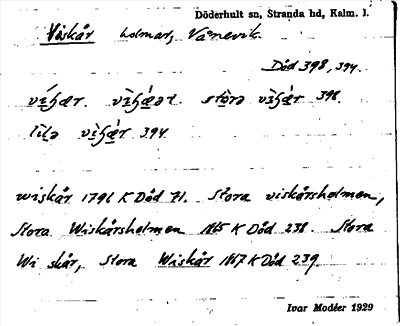 Döderhult sn, Stranda hd, Kalm. l.
Viskår holmar, Vånevik
Död 398, 394.
398.
394
wiskår 1796 K Död 71. Stora viskårsholmen,
Stora Wiskårsholmen 1865 K Död 238. Stora
Wi skår, Stora Wiskår 1867 K Död 239
Ivar Modéer 1929